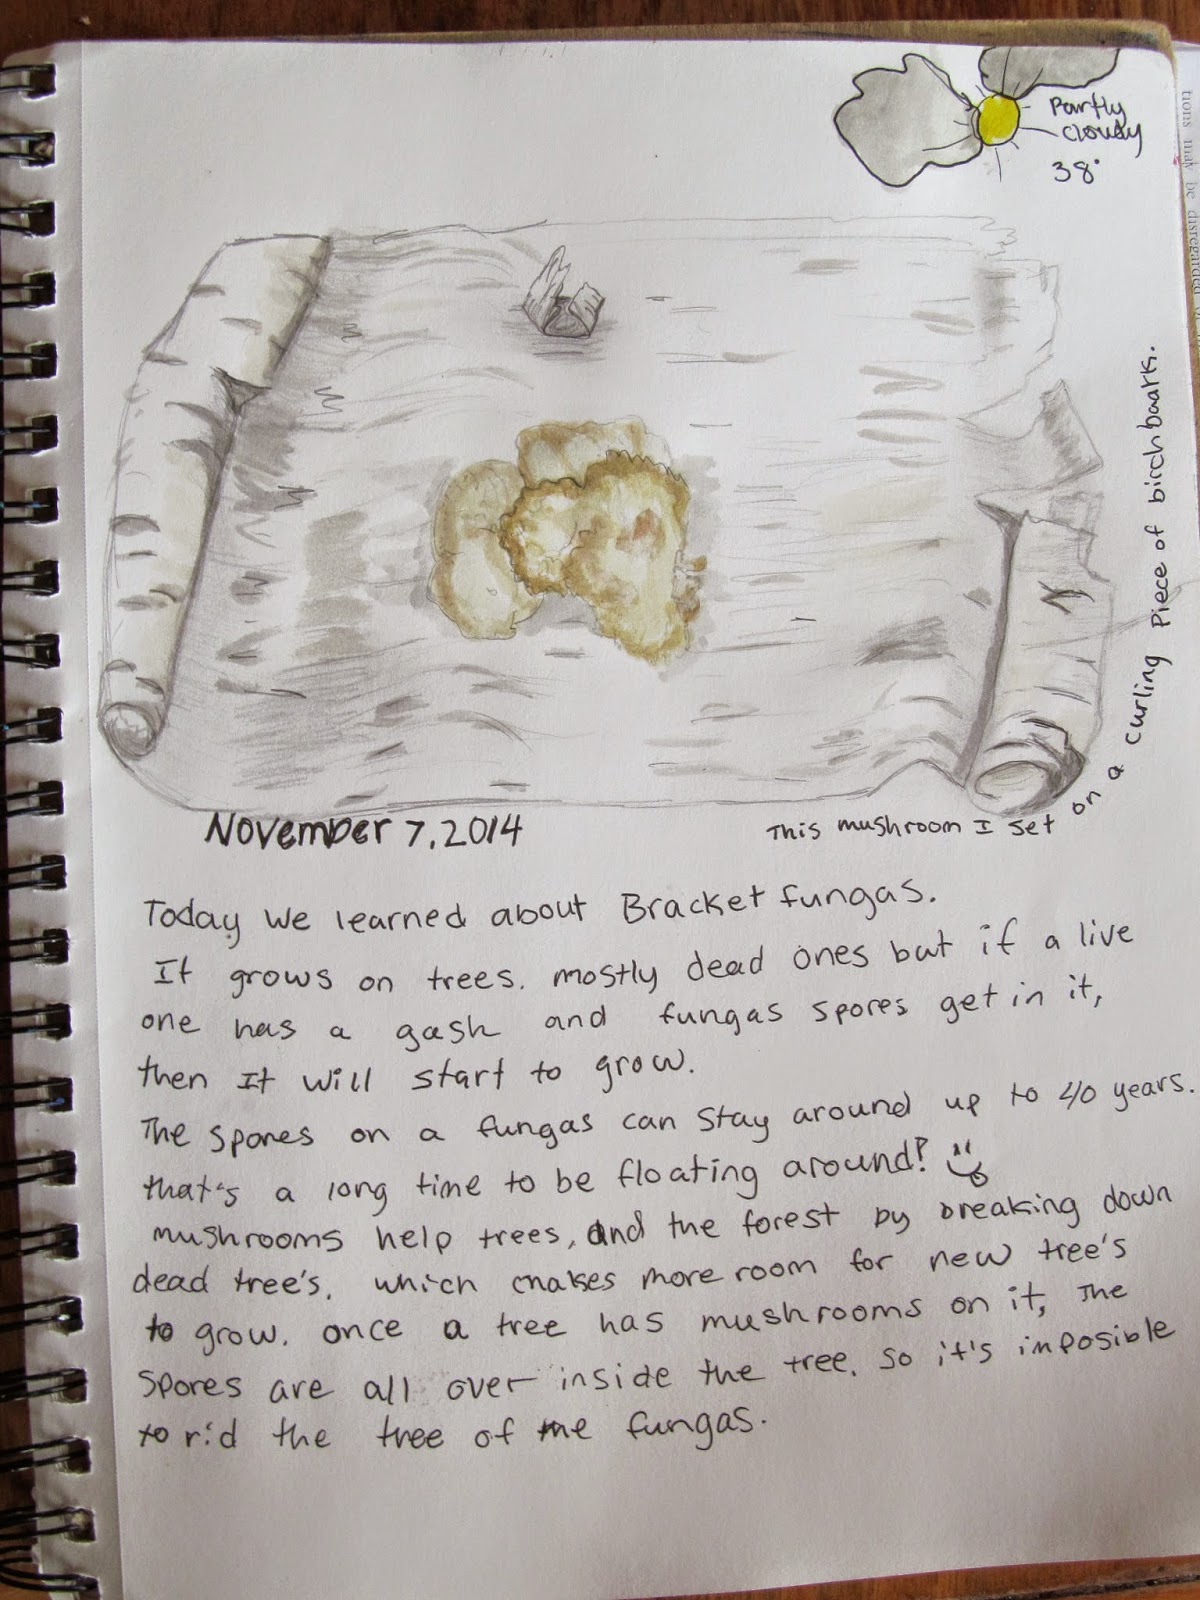 Partly
cloudy
38°
tions may be disregarded
This mushroom I set on a curling Piece of birch baark.
November 7, 2014
Today we learned about Bracket fungas.
It grows on trees. mostly dead ones but if a live
one has a gash and fungas spores get in it,
then It will start to grow.
The spores on a fungas can stay around up to 40 years.
that's a long time to be floating around!
mushrooms help trees, and the forest by breaking down
dead tree's. which makes more room for new tree's
to grow. once a tree has mushrooms on it, The
spores are all over inside the tree. so it's imposible
to rid the tree of the fungas.